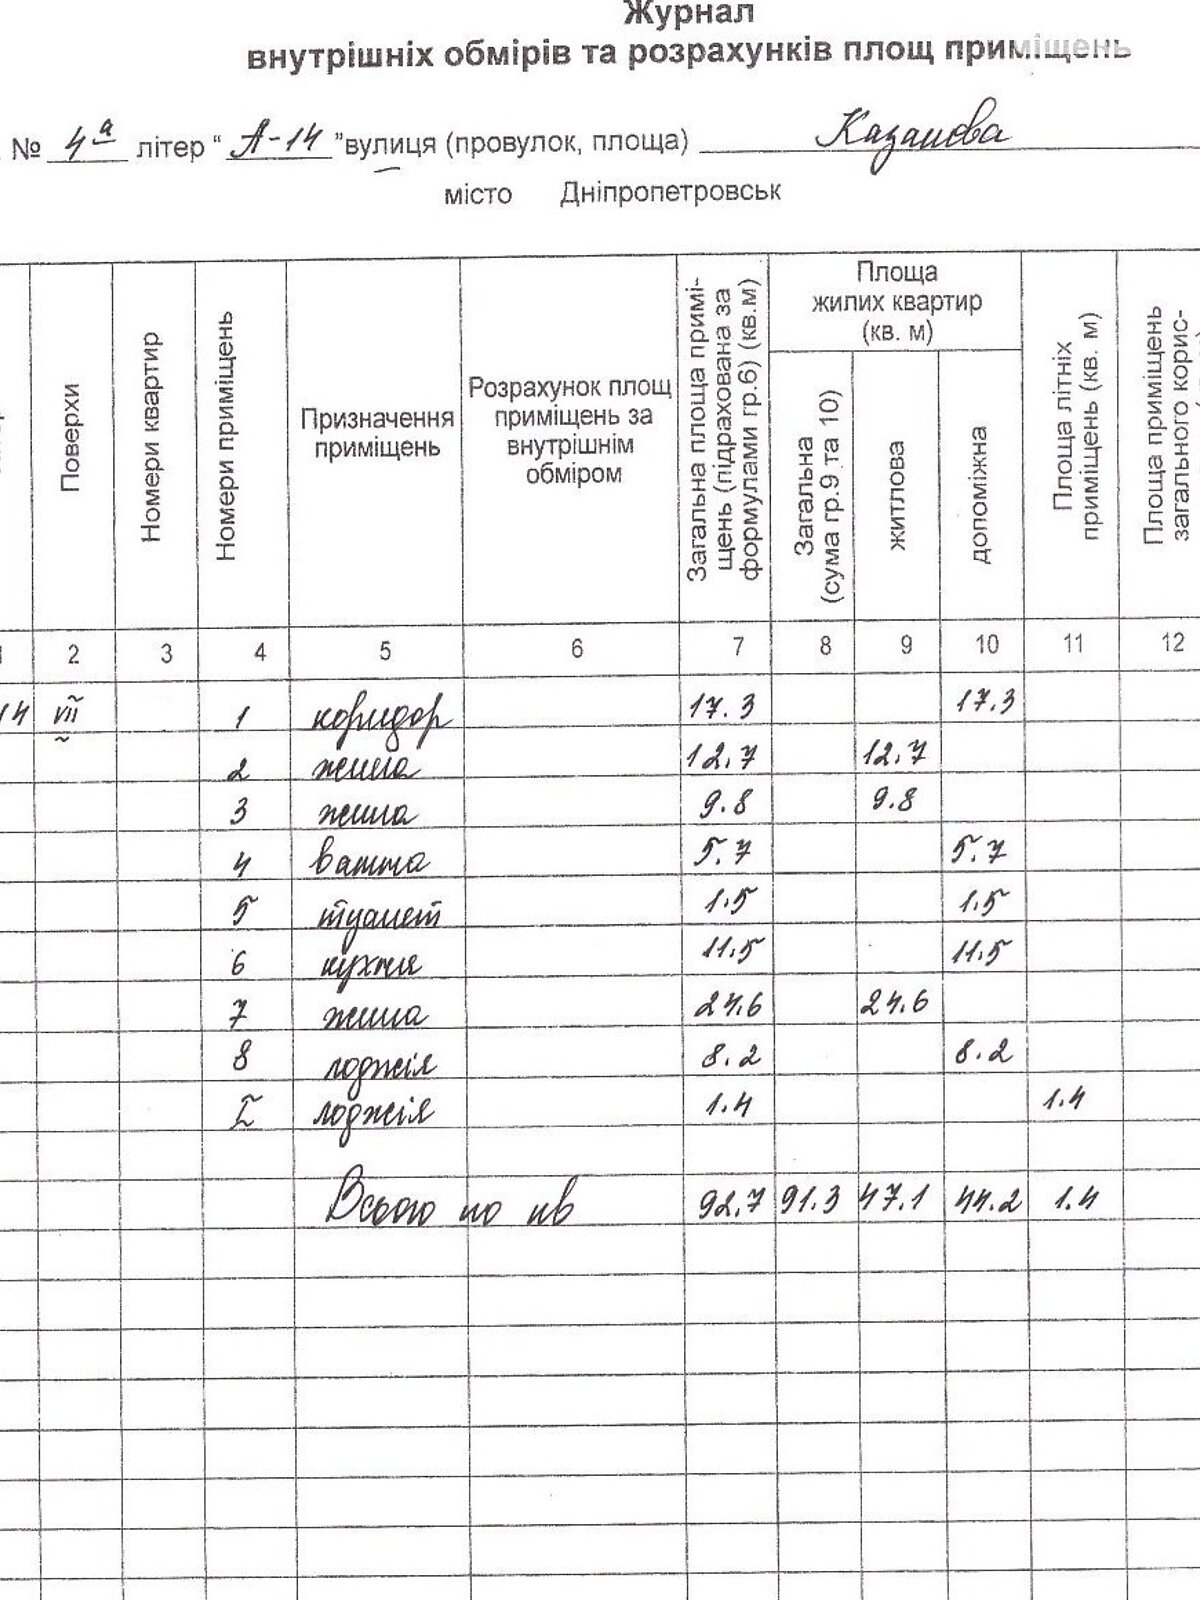 Журнал
внутрішніх обмірів та розрахунків площ приміщень
№ 4а літер “ А-14 ”вулиця (провулок, площа) Казакова
місто Дніпропетровськ
Поверхи
Номери квартир
Номери приміщень
Призначення
приміщень
Розрахунок площ
приміщень за
внутрішнім
обміром
Загальна площа примі-
щень (підрахована за
формулами гр.6) (кв.м)
Площа
жилих квартир
(кв. м)
Загальна
(сума гр.9 та 10)
житлова
допоміжна
Площа літніх
приміщень (кв. м)
Площа приміщень
загального корис-
1 2 3 4 5 6 7 8 9 10 11 12
14 VII 1 коридор 17.3 17.3
2 жила 12.7 12.7
3 жила 9.8 9.8
4 ванна 5.7 5.7
5 туалет 1.5 1.5
6 кухня 11.5 11.5
7 жила 24.6 24.6
8 лоджія 8.2 8.2
I лоджія 1.4 1.4
Всього по кв 92.7 91.3 47.1 44.2 1.4